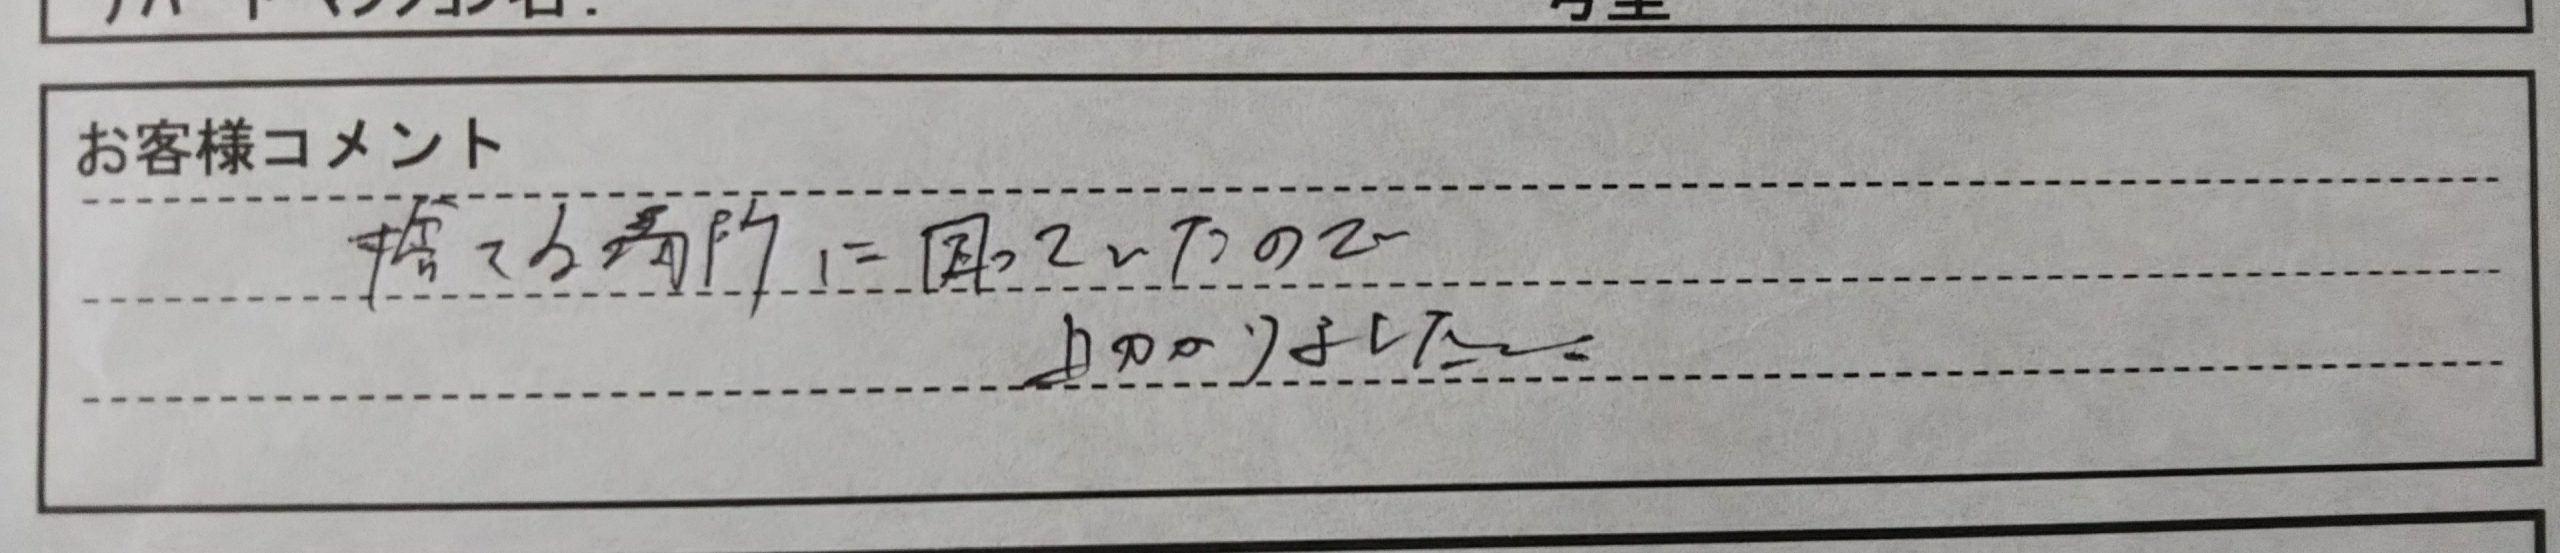 アパートマンション名:
号室
お客様コメント
捨てる場所に困っていたので
助かりました